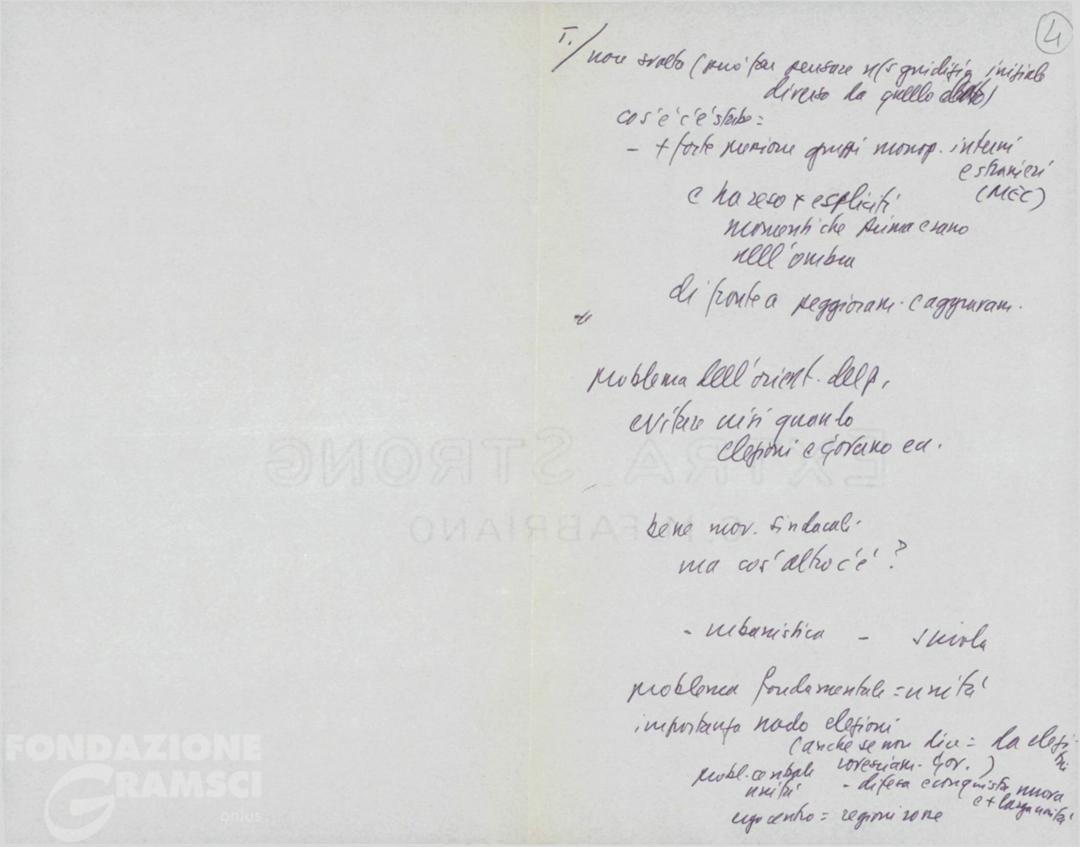 4
I./ non svolta (può far pensare giudizio iniziale
diverso da quello dato)
cos'è c'è stato =
- + forte pressione gruppi monop. interni
e stranieri
(MEC)
e ha reso + espliciti
momenti che prima erano
nell'ombra
di fronte a peggioram. e aggravam.
problema dell'orient. del p.
evitare crisi quando
elezioni e governo
bene mov. sindacali
ma cos'altro c'è?
- urbanistica - scuola
problema fondamentale = unità
importanza nodo elezioni
(anche se non dice = da elezioni
rovesciam. gov.)
probl. centrale
unità
- difesa e conquista nuova
e + larga unità
= regioni rosse
EXTRA STRONG
FABRIANO
FONDAZIONE
GRAMSCI
onlus